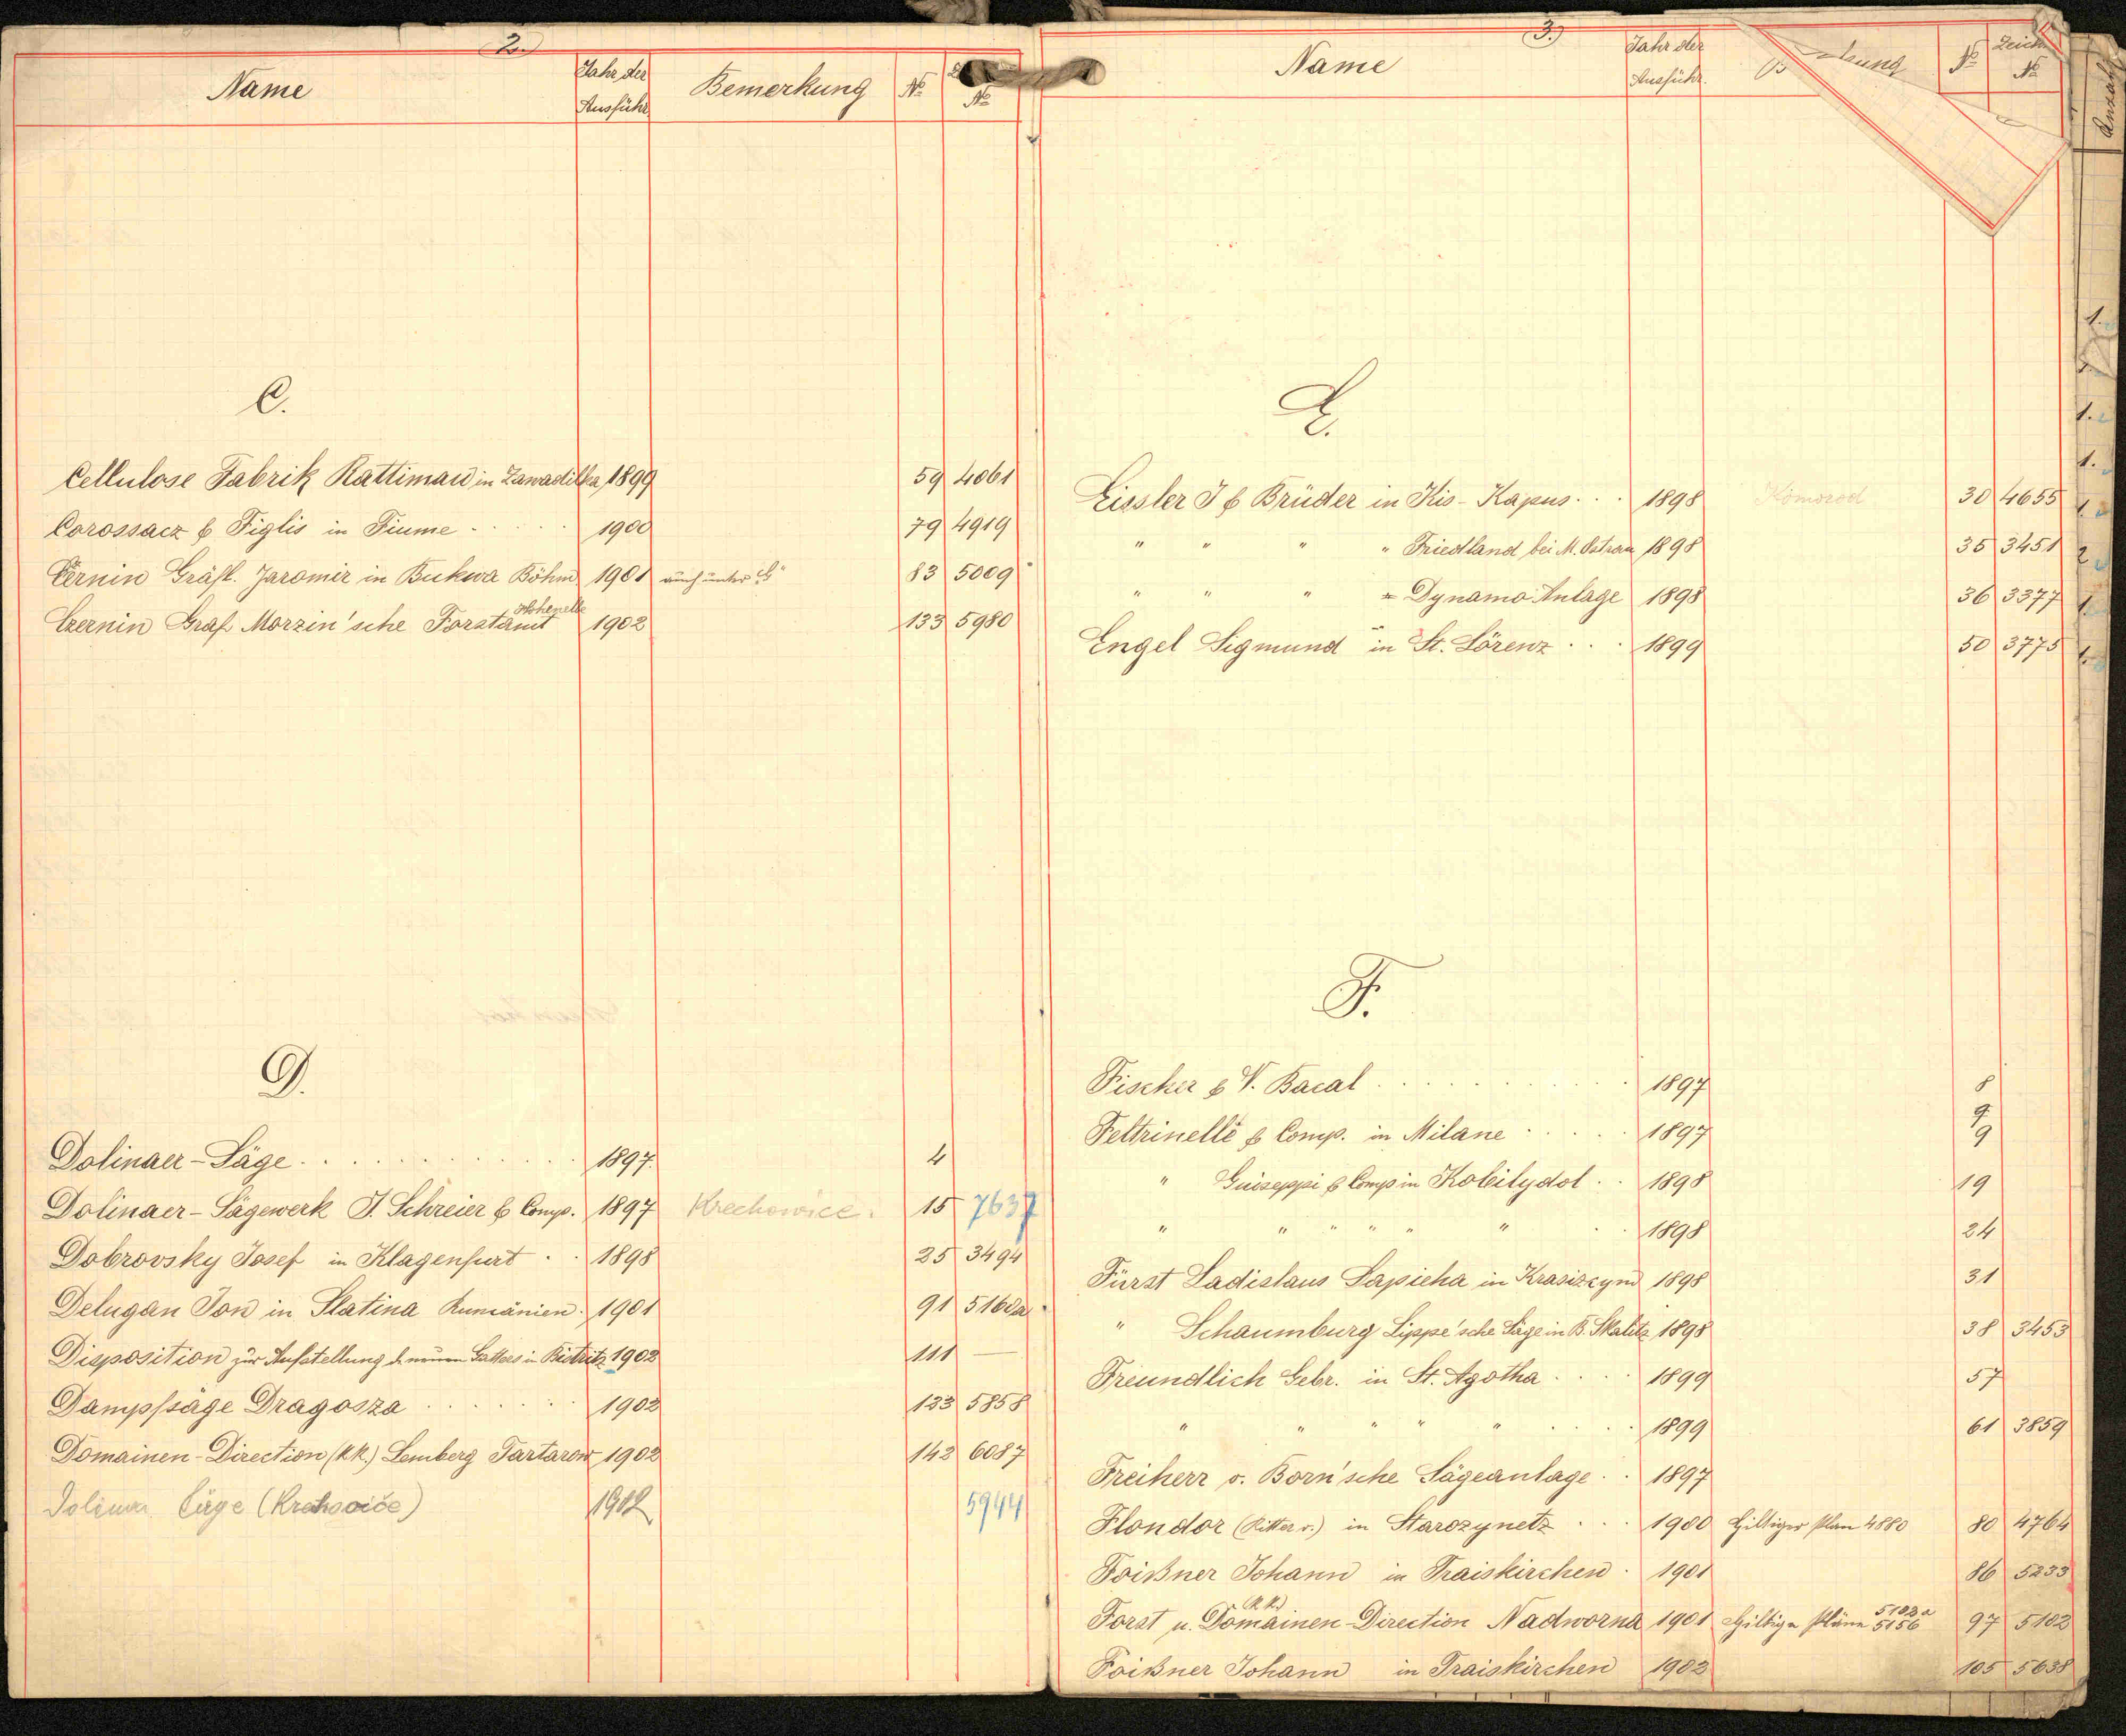 2.
Name Jahr der Ausführ. Bemerkung № №
C.
Cellulose Fabrik Rattimau in Zawadilka 1899 59 4061
Corossacz & Figlis in Fiume 1900 79 4919
Černin Gräfl. Jaromir in Bukwa Böhm. 1901 auch unter "G" 83 5009
Czernin Graf Morzin'sche Forstamt Hohenelbe 1902 133 5980
D.
Dolinaer-Säge 1897. 4
Dolinaer-Sägewerk J. Schreier & Comp. 1897 Krechowice. 15 7637
Dobrovsky Josef in Klagenfurt 1898 25 3494
Delugan Ion in Slatina Rumänien. 1901 91 5160a
Disposition zur Aufstellung d. neuen Gatters in Bistritz 1902 111 —
Dampfsäge Dragosza 1902 123 5858
Domainen-Direction (k.k.) Lemberg Tartarow 1902 142 6087
Säge (Krechowiče) 1902 5944
3.
Name Jahr der Ausführ. № Zeich. №
Anzahl
E.
Eissler J & Brüder in Kis-Kapus 1898 Komorod 30 4655
" " " " Friedland bei M. Ostrau 1898 35 3451
" " " = Dynamo Anlage 1898 36 3377
Engel Sigmund in St. Lörenz 1899 50 3775
F.
Fischer & V. Bacal 1897 8
Feltrinelle & Comp. in Milane 1897 9
" Guiseppi & Comp in Kobilydol 1898 19
" " " " " " 1898 24
Fürst Ladislaus Sapieha in Krasiczyn 1898 31
" Schaumburg Lippe'sche Säge in B. Skalitz 1898 38 3453
Freundlich Gebr. in St. Agotha 1899 57
" " " " " 1899 61 3859
Freiherr v. Born'sche Sägeanlage 1897
Flondor (Ritter v.) in Starozynetz 1900 Giltiger Plan 4880 80 4764
Foißner Johann in Traiskirchen 1901 86 5233
Forst u. (k.k.) Domainen-Direction Nadworna 1901 Giltige Pläne 5102a 5156 97 5102
Foißner Johann in Traiskirchen 1902 105 5638